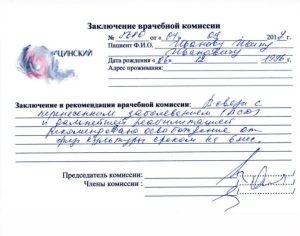 Заключение врачебной комиссии
№ 5686 от «01» 09 2014 г.
Пациент Ф.И.О. Иванову Ивану
ЦИНСКИЙ
Ивановичу
Дата рождения «06» 12 1996 г.
Адрес проживания:
Заключение и рекомендации врачебной комиссии: В связи с
перенесенным заболеванием
и дальнейшей реабилитацией
рекомендовано освобождение от
физкультуры сроком на 6 мес.
Председатель комиссии:
Члены комиссии :